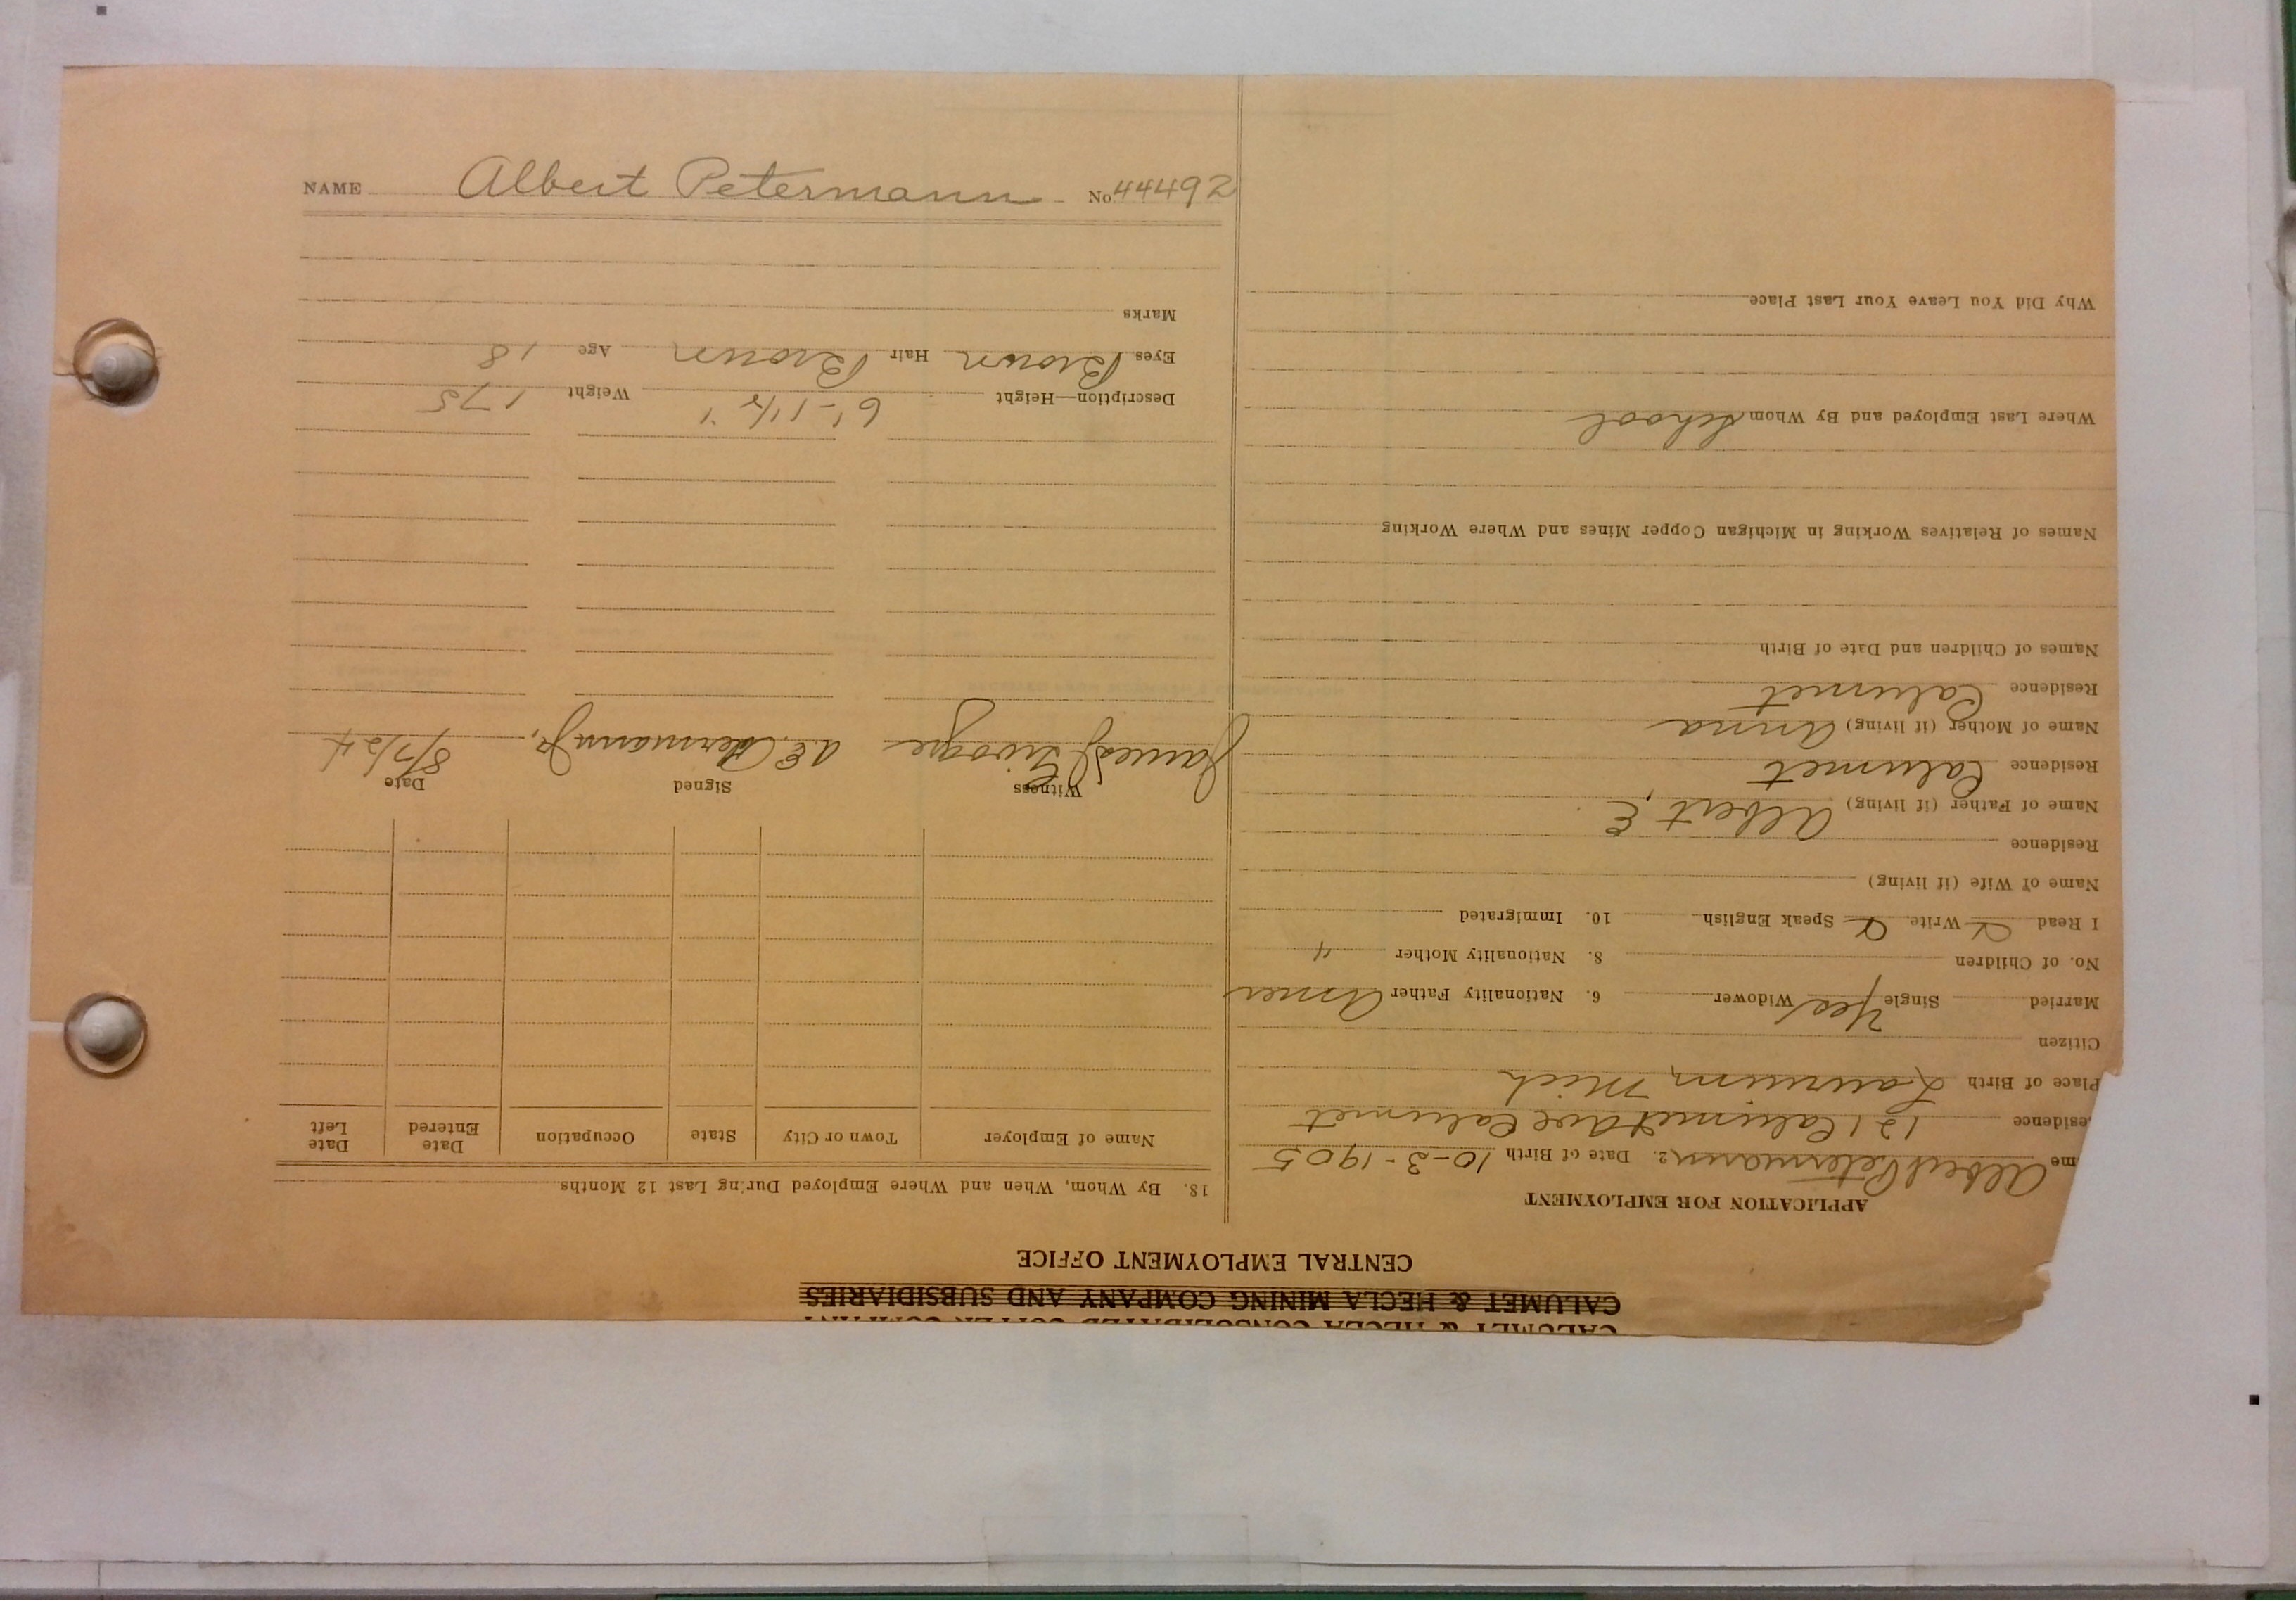 NAME Albert Petermann No 44492
CALUMET & HECLA CONSOLIDATED COPPER COMPANY
CALUMET & HECLA MINING COMPANY AND SUBSIDIARIES
CENTRAL EMPLOYMENT OFFICE
APPLICATION FOR EMPLOYMENT
me Albert Petermann 2. Date of Birth 10-3-1905
esidence 121 Calumet Ave Calumet
Place of Birth Laurium, Mich
Citizen
Married Single Yes Widower 6. Nationality Father Amer
No. of Children 8. Nationality Mother "
I Read Write Speak English 10. Immigrated
Name of Wife (if living)
Residence
Name of Father (if living) Albert E.
Residence Calumet
Name of Mother (if living) Anna
Residence Calumet
Names of Children and Date of Birth
Names of Relatives Working in Michigan Copper Mines and Where Working
Where Last Employed and By Whom School
Why Did You Leave Your Last Place
18. By Whom, When and Where Employed During Last 12 Months
Name of Employer Town or City State Occupation Date Entered Date Left
Witness Signed Date
James A.E. Petermann Jr. 8/7/24
Description—Height 6'-1 1/2" Weight 175
Eyes Brown Hair Brown Age 18
Marks